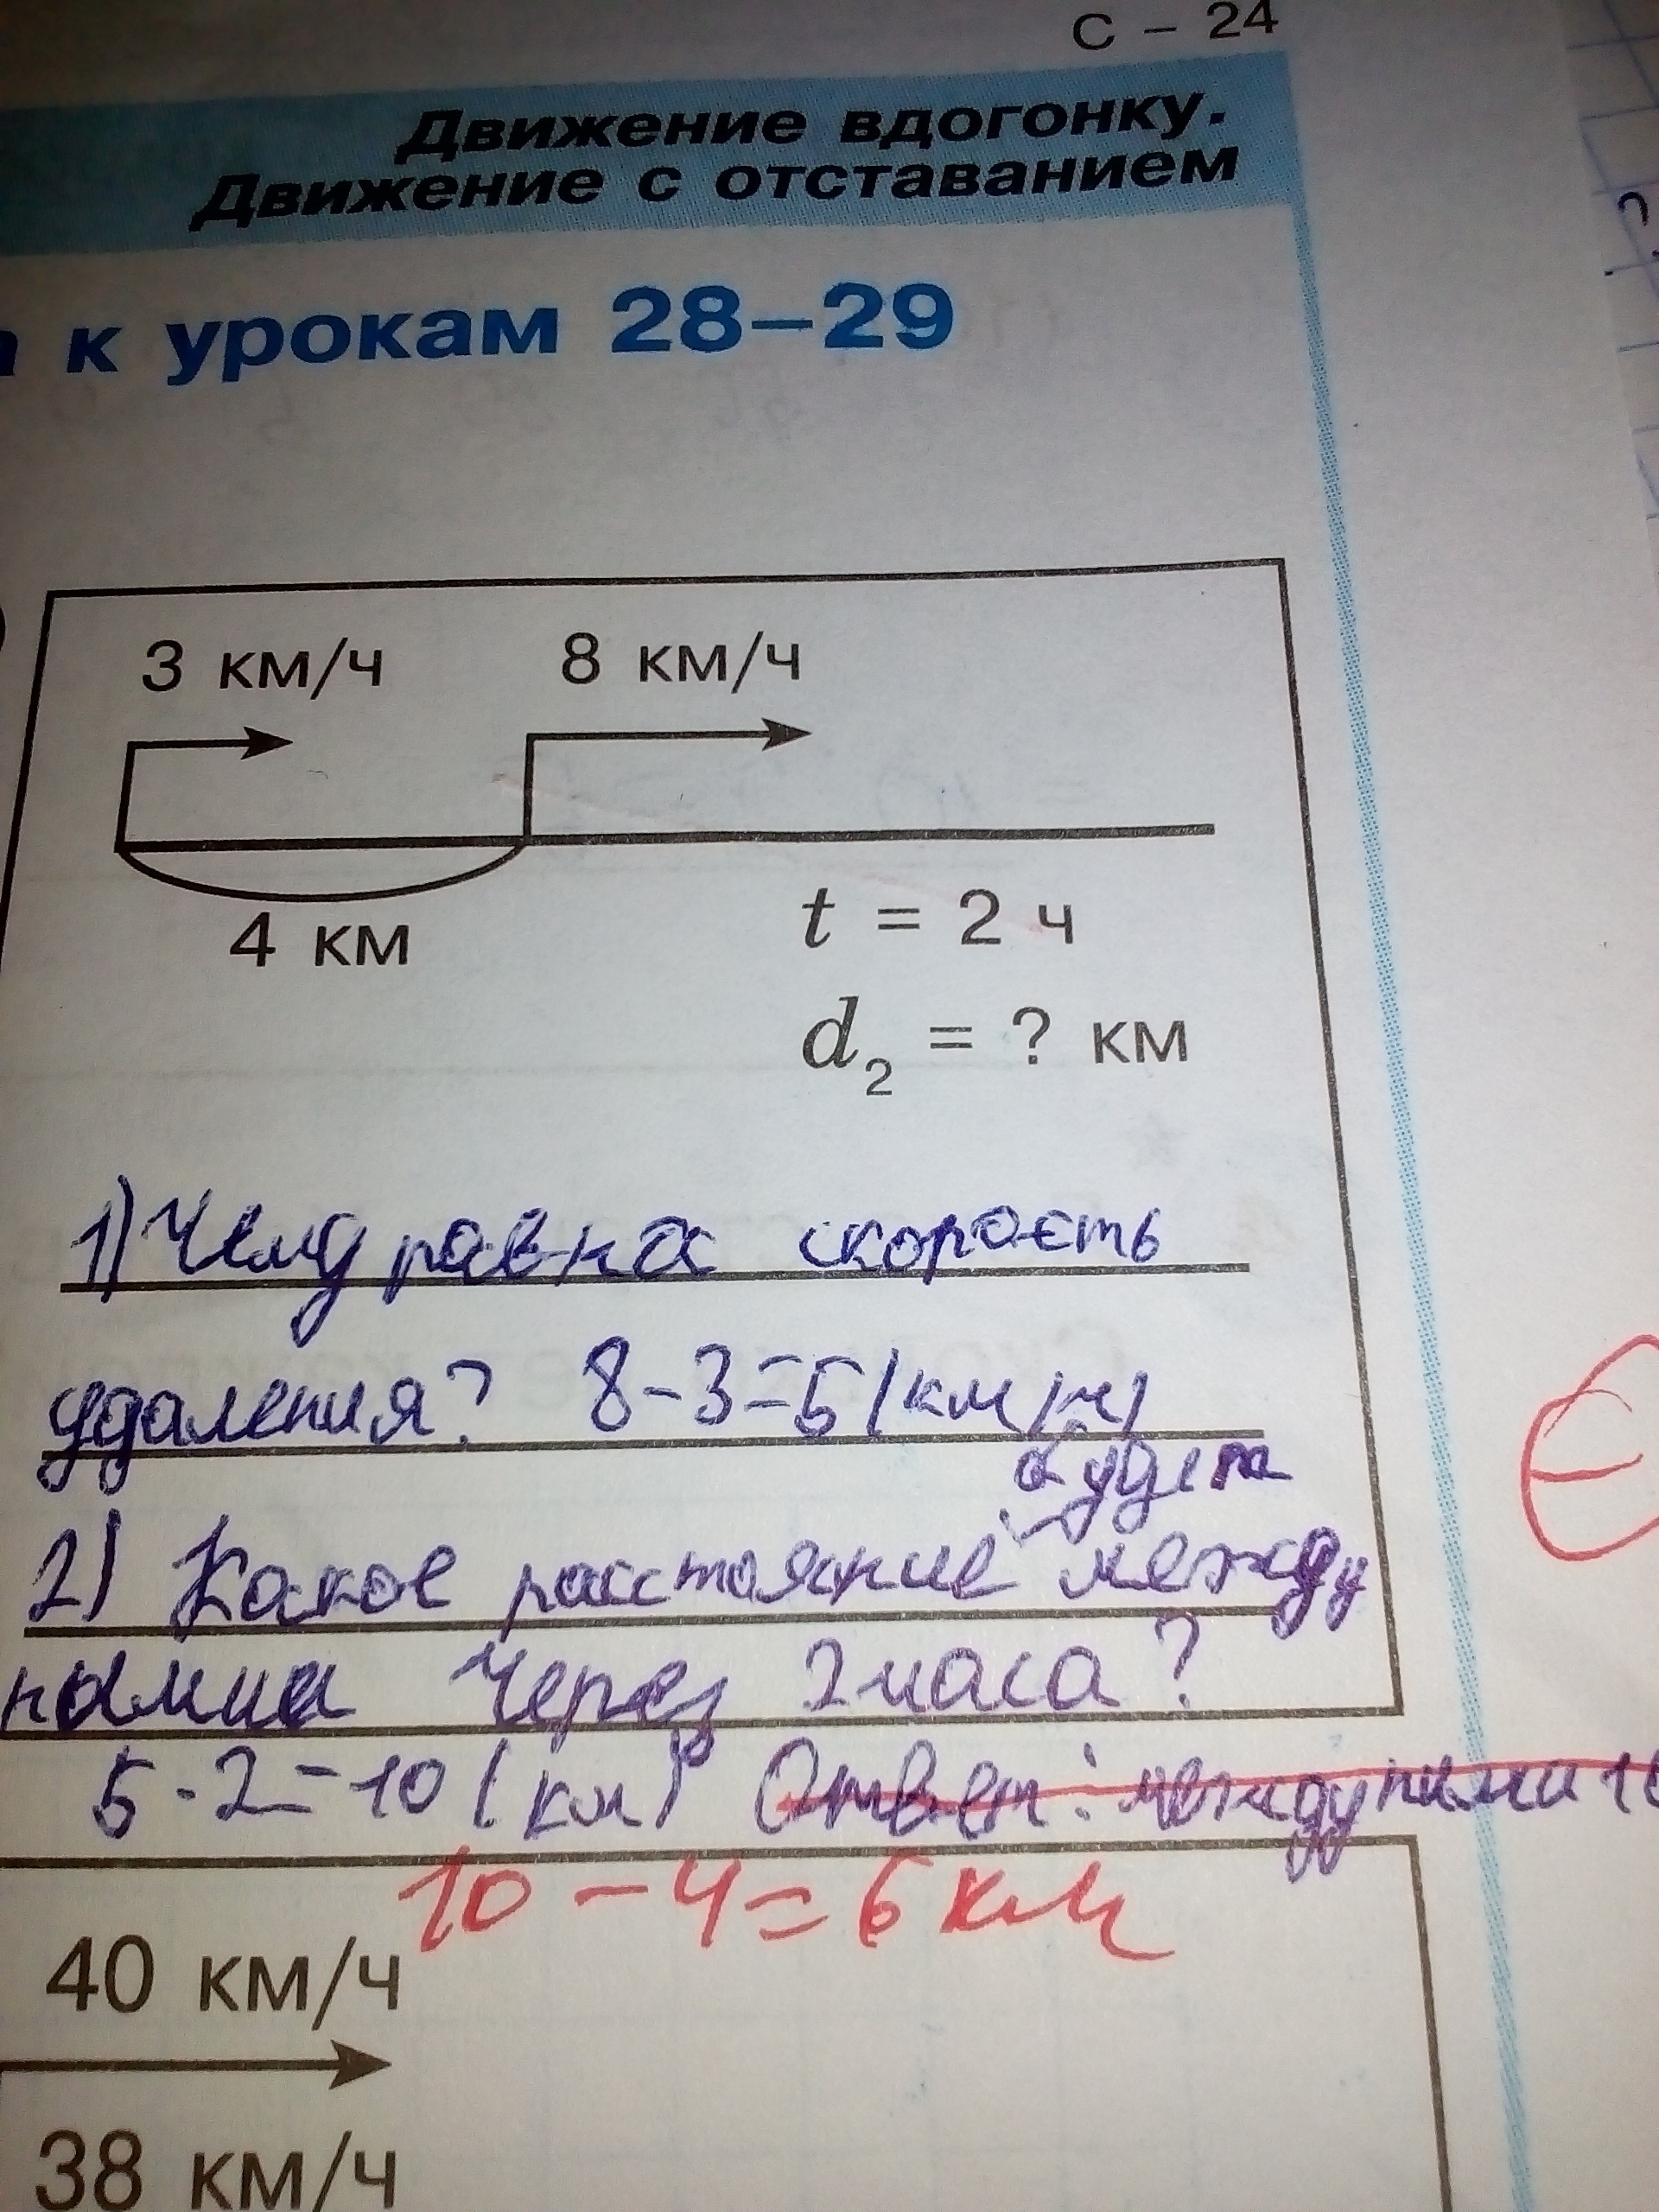 С – 24
Движение вдогонку.
Движение с отставанием
к урокам 28–29
3 км/ч 8 км/ч
4 км
t = 2 ч
d₂ = ? км
1) Чему равна скорость
удаления? 8-3=5(км/ч)
будет
2) Какое расстояние между
ними через 2 часа?
5·2=10(км) Ответ: между ними
10-4=6 км
40 км/ч
38 км/ч